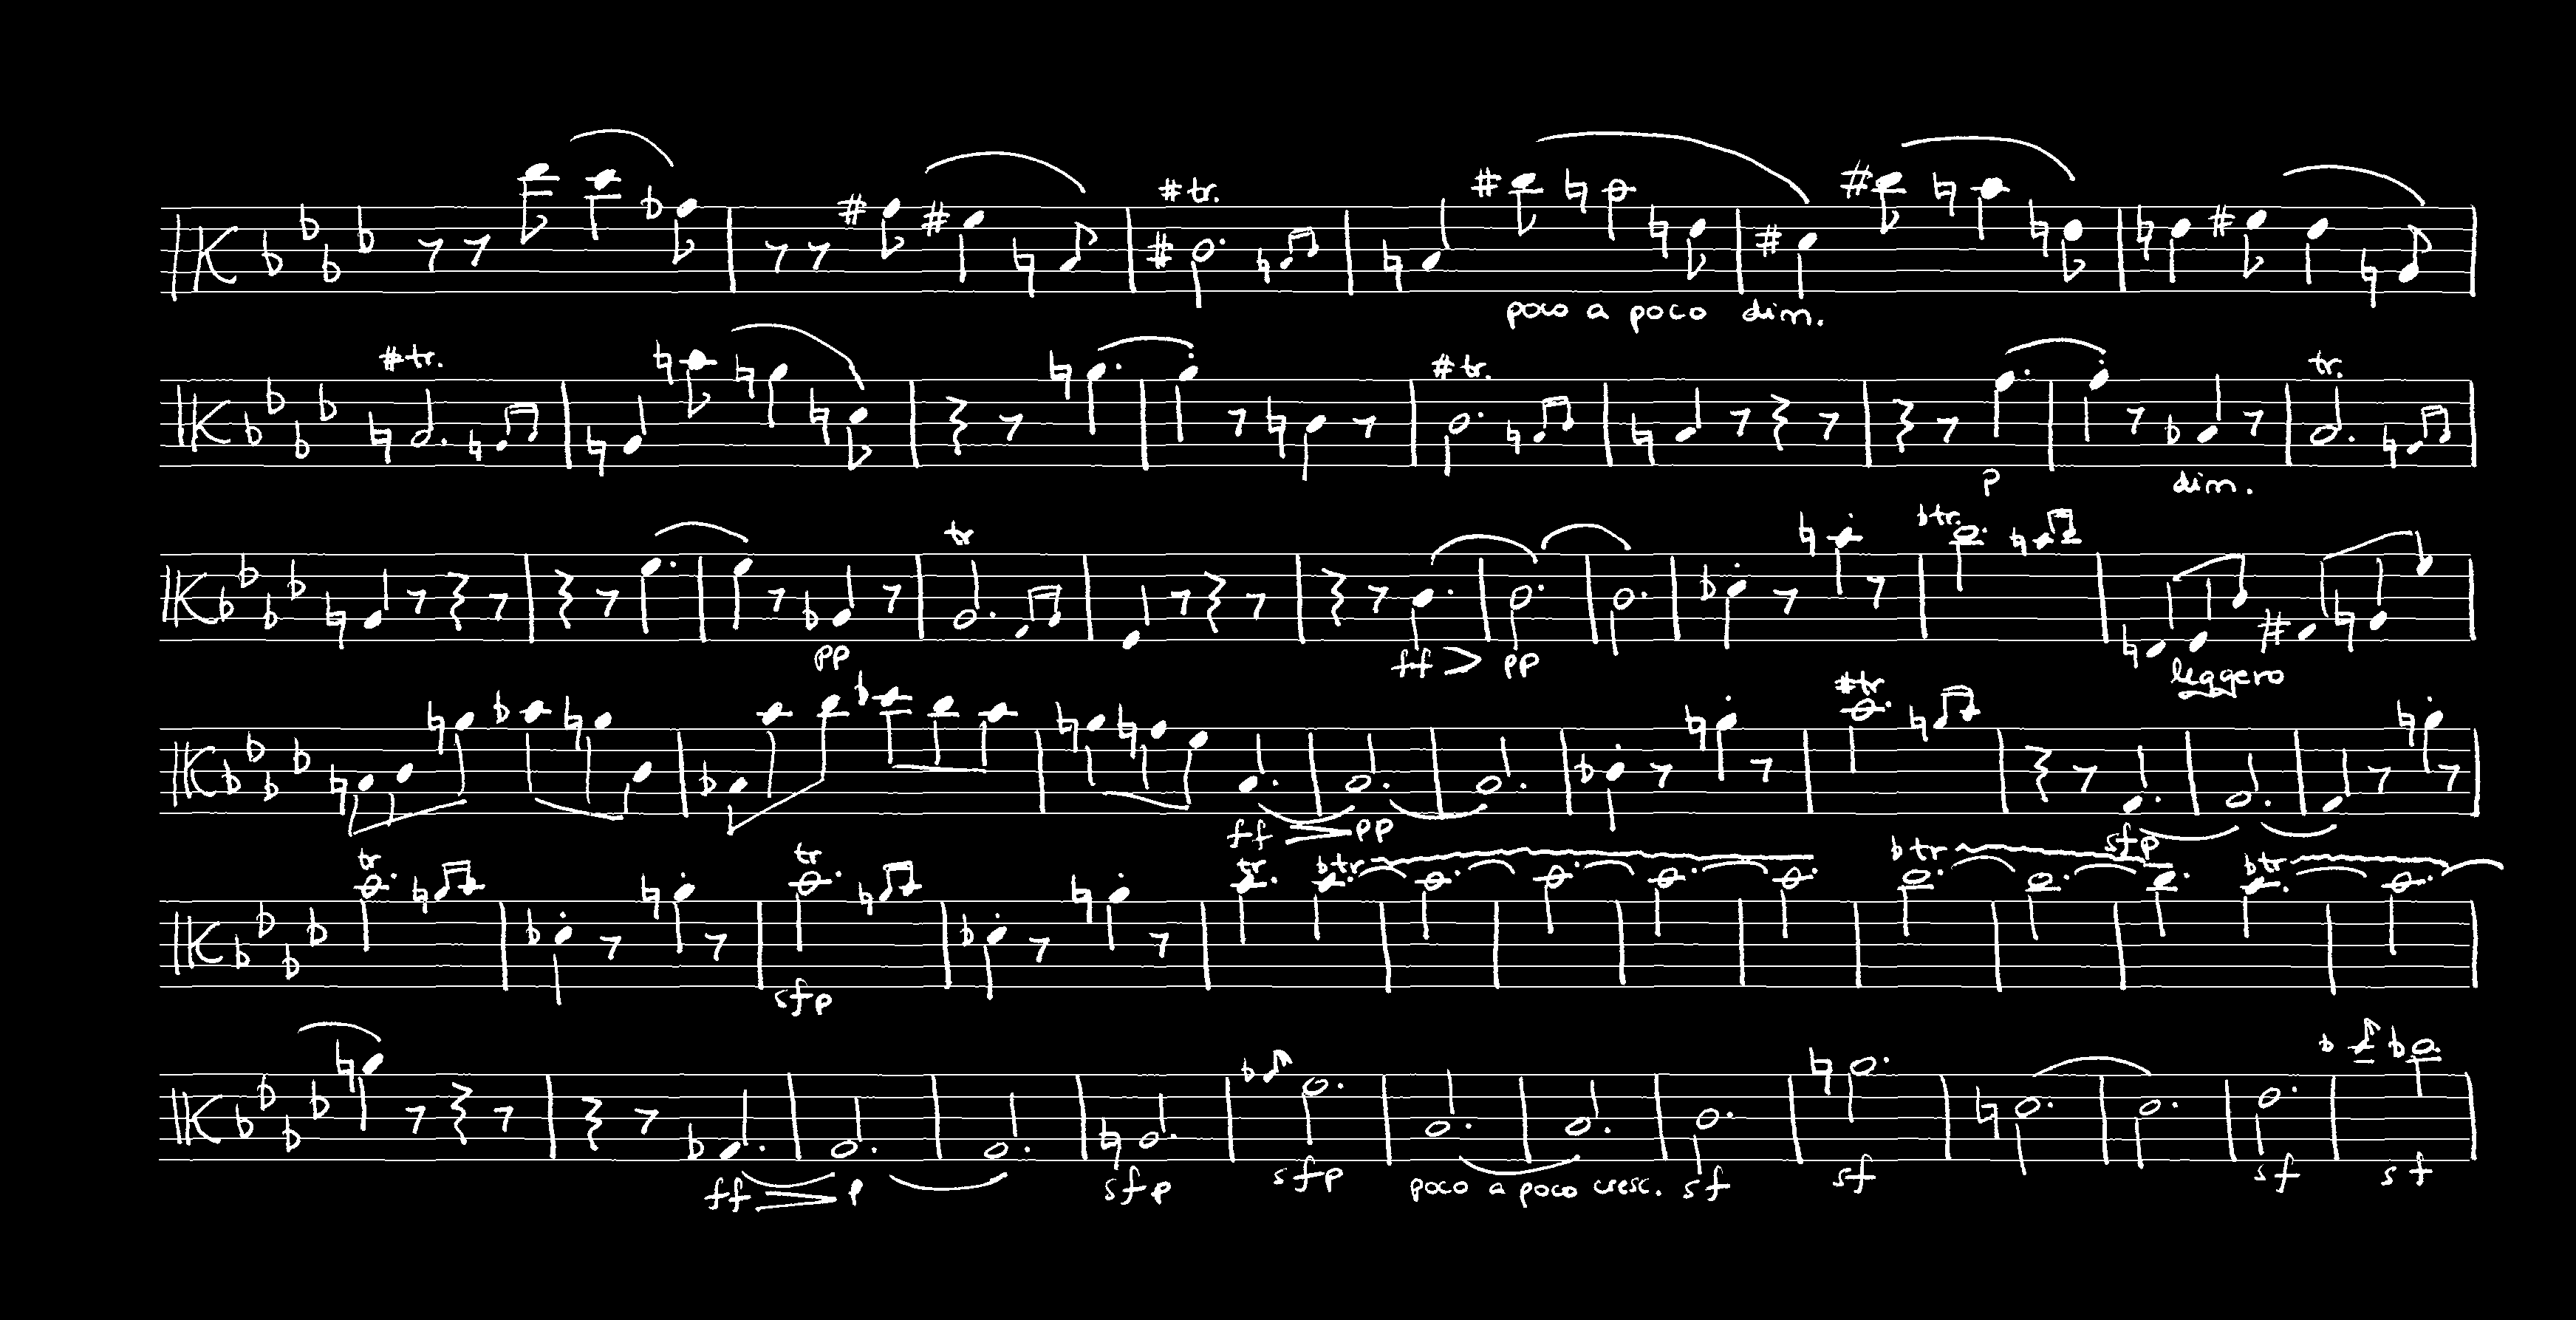 tr.
poco a poco dim.
tr. tr. tr.
p dim.
tr tr.
pp ff pp leggero
tr
ff pp sfp
tr tr tr. tr. tr tr
sfp
ff p sfp sfp poco a poco cresc. sf sf sf sf